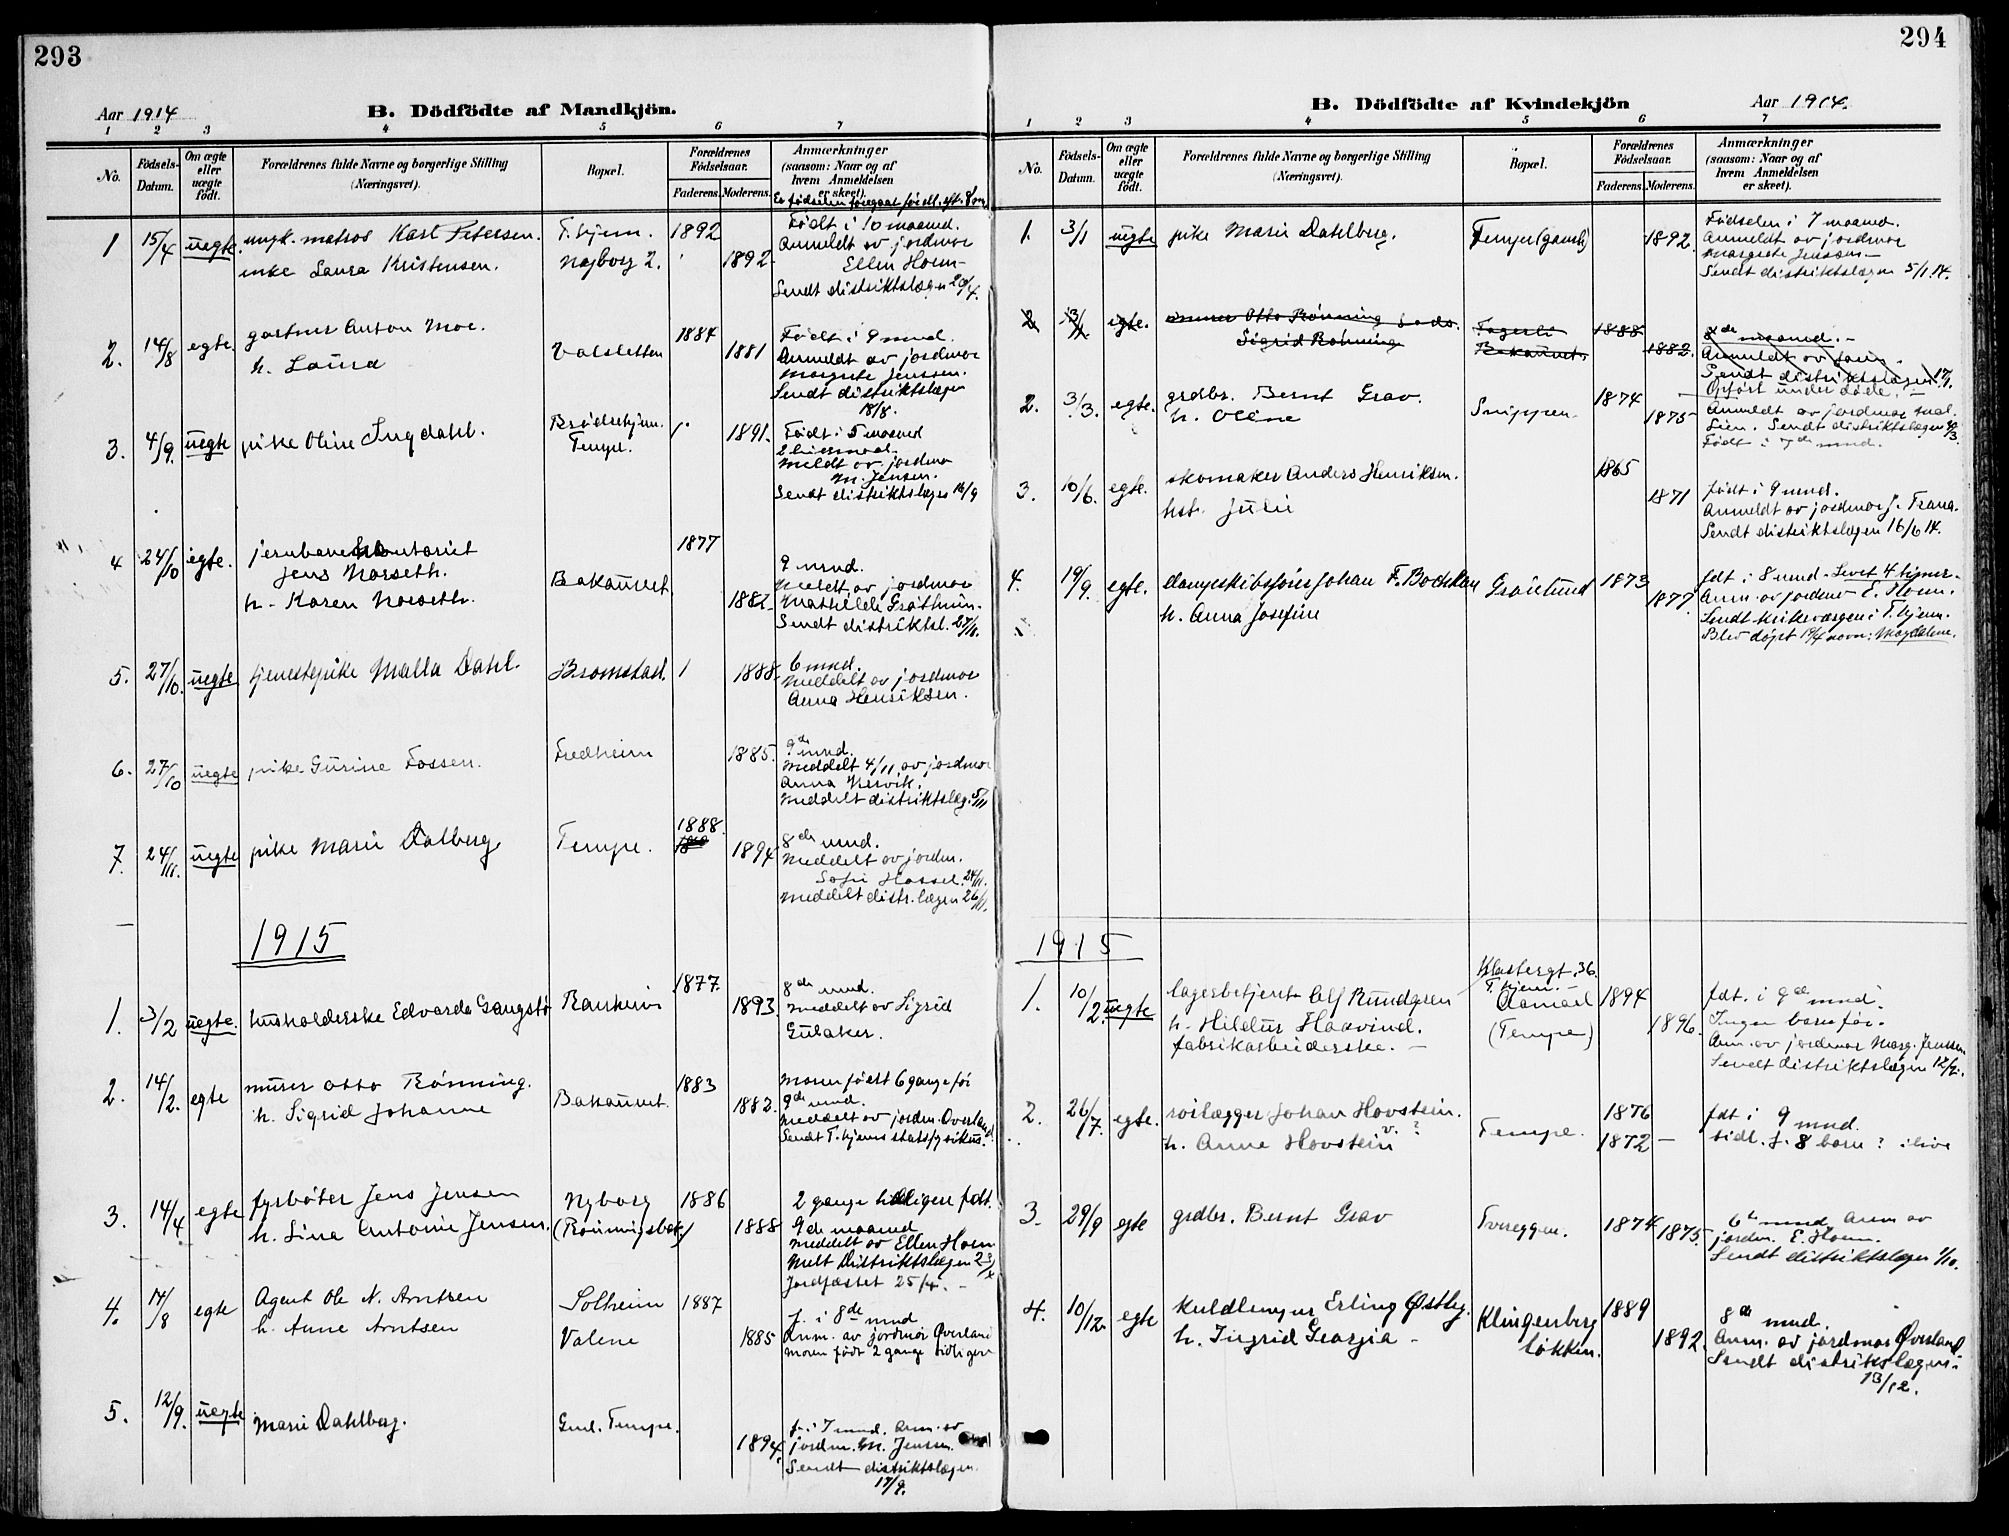 293
Aar 1914
B. Dödfödte af Mandkjön.
1 2 3 4 5 6 7
No.
Födsels-Datum.
Om ægte eller uægte födt.
Forældrenes fulde Navne og borgerlige Stilling (Næringsvei).
Bopæl.
Forældrenes Födselsaar.
Faderens. Moderens.
Anmærkninger (saasom: Naar og af hvem Anmeldelsen er skeet).
1 15/4 uegte. ungk. matros Karl Petersen. T.hjem. 1892
Laura Kristensen. Nyborg 2. 1892
Født i 10 maaned.
Anmeldt av jordmor
Ellen Hoem
Sendt distriktslægen 20/4.
2. 14/8 egte. gartner Anton Moe. 1884
h. Laura Valsletten 1881
Født i 9 mnd.
Anmeldt av jordmor
Margrete Jenssen.
Sendt distriktslægen
18/8.
3. 4/9. uegte pike Oline Ingdahl. Tempe. 1891.
Født i 5 maaned
Meldt av jordmor
M. Jensen.
Sendt distriktslægen 16/9
4 24/10 egte. 1877
Jens Norseth.
h. Karen Norseth. Bakaunet 1882
9 mnd.
Meldt av jordmor
Sendt distriktsl. 27/10.
5. 27/10. uegte tjenestepike Malla Dahl. Bromstad. 1888.
6 mnd.
Meddelt av jordmor
Anna Henriksen.
6. 27/10 uegte pike Gurine Fossen. Fredheim 1885.
9de mnd.
Meddelt 4/11 av jordmor
Anna Nervik.
Meddelt distriktslæg. 5/11
7. 24/11. uegte pike Marie Dalberg Tempe. 1888. 1894
8de mnd.
Meddelt av jordm.
Sofie Hassel. 24/11.
Meddelt distr.lægen 26/11.
1915
1. 3/2 uegte. husholderske Edvarda Gangstø Ranheim 1877. 1893
8de mnd.
Meddelt av Sigrid
Gulaker.
2. 14/2. egte murer Otto Rönning. 1883
h. Sigrid Johanne Bakaunet. 1882.
Moren født 6 gange før
9de mnd.
Meddelt av jordm. Overland
Sendt T.hjems statsfysikus.
3. 14/4 egte fyrböter Jens Jensen Nyborg 1886
h. Lina Antonie Jensen. 1888
2 gange tidligere født.
9de maaned
Meddelt av Ellen Hoem
Melt Distriktslægen 23/4
Jordfæstet 25/4.
4. 17/8 egte Agent Ole N. Arntsen Solheim 1887
h. Anne Arntsen Valene 1885
f. i 8de mnd
Anm. av jordmor Överland
moren født 2 gange tidligere
5. 12/9. uegte Marie Dahlberg. Gml. Tempe. 1894
f. i 7 mnd. Anm. av
jordm. M. Jenssen.
Sendt distriktslægen.
17/9.
294
B. Dödfödte af Kvindekjön
Aar 1914.
1 2 3 4 5 6 7
No.
Födsels-Datum.
Om ægte eller uægte födt.
Forældrenes fulde Navne og borgerlige Stilling (Næringsvei).
Bopæl.
Forældrenes Födselsaar.
Faderens. Moderens.
Anmærkninger (saasom: Naar og af hvem Anmeldelsen er skeet).
1. 3/1 uegte pike Marie Dahlberg. Tempe (gamle) 1892.
Födselen i 7 maaned.
Anmeldt av jordmor
Margrete Jenssen
Sendt distriktslægen 5/1.14.
2 13/1 egte. murer Otto Rönning Fagerli 1883
Sigrid Rönning Bakaunet. 1882.
8de maaned.
Anmeldt av faren.
Sendt distriktslægen 17/1.
Opført under døde.
2. 3/3. egte. grdbr. Bernt Grav. 1874
h. Oline Snippen 1875
Anmeldt av jordmor
Lien. Sendt distriktslægen
Födt i 7de mnd.
3. 10/6. egte. skomaker Anders Henriksen. 1865
hst. Julie 1871
født i 9 mnd.
Anmeldt av jordmor J. Trana.
Sendt distriktslægen 16/6 14.
4. 19/9. egte. Johan F. Bochman Grönlund 1873
h. Anna Josefine 1877
født i 8 mnd. Levet 4 timer.
Anm. av jordmor E. Hoem.
Sendt kirkeværgen i T.hjem.
Blev døpt navn: Magdalene.
1915
1. 10/2. uegte lagerbetjent Alf Rundgren Klostergt. 36. T.hjem. 1894
h. Hildur Haavind. (Tempe) 1896.
fabrikarbeiderske.
fdt. i 9de mnd.
Ingen barn før.
Anm. av jordmor Marg. Jenssen
Sendt distriktslægen 12/2.
2. 26/7. egte. Johan Hovstein. 1876
h. Anne Hovstein Tempe. 1872
fdt i 9 mnd.
tidl. f. 8 barn ? i live
3. 29/9 egte grdbr. Bernt Grav Tvereggen. 1874 1875.
6te mnd Anm av
jordm. E. Hoem.
Sendt distriktslægen 1/10.
4. 10/12. egte Erling Østby. Klingenberg 1889
h. Ingrid Georgia løkken. 1892.
8de mnd.
Anm. av jordmor Øverland
Sendt distriktslægen
13/12.